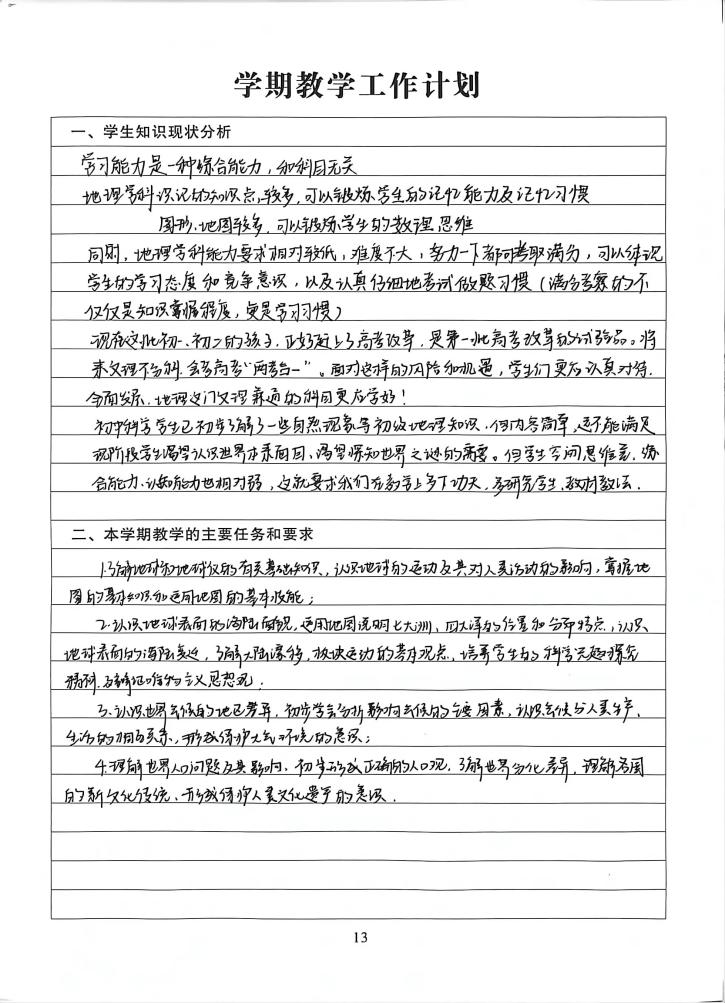 学期教学工作计划
一、学生知识现状分析
学习能力是一种综合能力，和科目无关
地理学科识记的知识点较多，可以锻炼学生的记忆能力及记忆习惯
图形、地图较多，可以锻炼学生的数理思维
同时，地理学科能力要求相对较低，难度不大，努力一下都可考取满分，可以体现
学生的学习态度和竞争意识，以及认真仔细地考试做题习惯（满分考察的不
仅仅是知识掌握程度，更是学习习惯）
现在这批初一、初二的孩子，正好赶上了高考改革，是第一批高考改革的试验品。将
来文理不分科，会考高考“两考合一”。面对这样的风险和机遇，学生们更应认真对待.
全面发展.地理这门文理兼通的科目更应学好！
初中科学学生已初步了解了一些自然现象等初级地理知识，但内容简单，还不能满足
现阶段学生渴望认识世界本来面目，渴望探知世界之谜的需要。但学生空间思维差，综
合能力、认知能力也相对弱，这就要求我们在教学上多下功夫，多研究学生、教材教法.
二、本学期教学的主要任务和要求
1.了解地球和地球仪的有关基础知识，认识地球的运动及其对人类活动的影响，掌握地
图的基本知识和运用地图的基本技能；
2.认识地球表面的海陆面貌，运用地图说明七大洲、四大洋的位置和分布特点，认识
地球表面的海陆变迁，了解大陆漂移，板块运动的基本观点，培养学生的科学兴趣探究
精神及辩证唯物主义思想观；
3.认识世界气候的地区差异，初步学会分析影响气候的主要因素，认识气候与人类生产、
生活的相互关系，形成保护大气环境的意识；
4.理解世界人口问题及其影响、初步形成正确的人口观，了解世界文化差异，理解各国
的新文化传统、形成保护人类文化遗产的意识.
13